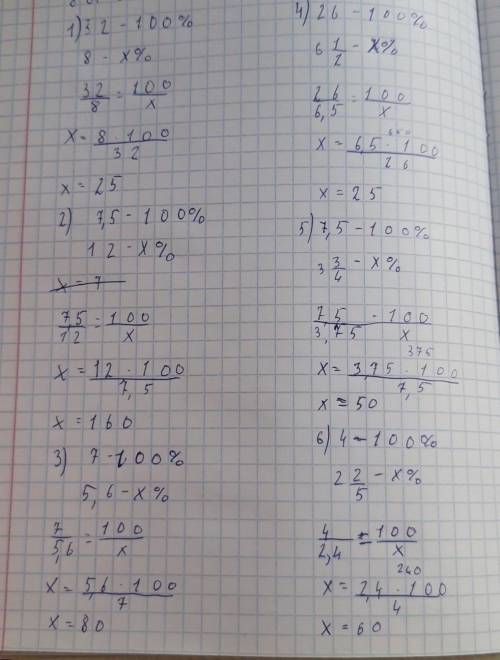 1) 32 - 100%
8 - x%
32/8 = 100/x
x = 8 · 100/32
x = 25
2) 7,5 - 100%
12 - x%
x = 7
7,5/12 = 100/x
x = 12 · 100/7,5
x = 160
3) 7 - 100%
5,6 - x%
7/5,6 = 100/x
x = 5,6 · 100/7
x = 80
4) 26 - 100%
6 1/2 - x%
26/6,5 = 100/x
650
x = 6,5 · 100/26
x = 25
5) 7,5 - 100%
3 3/4 - x%
7,5/3,75 - 100/x
375
x = 3,75 · 100/7,5
x = 50
6) 4 - 100%
2 2/5 - x%
4/2,4 = 100/x
240
x = 2,4 · 100/4
x = 60